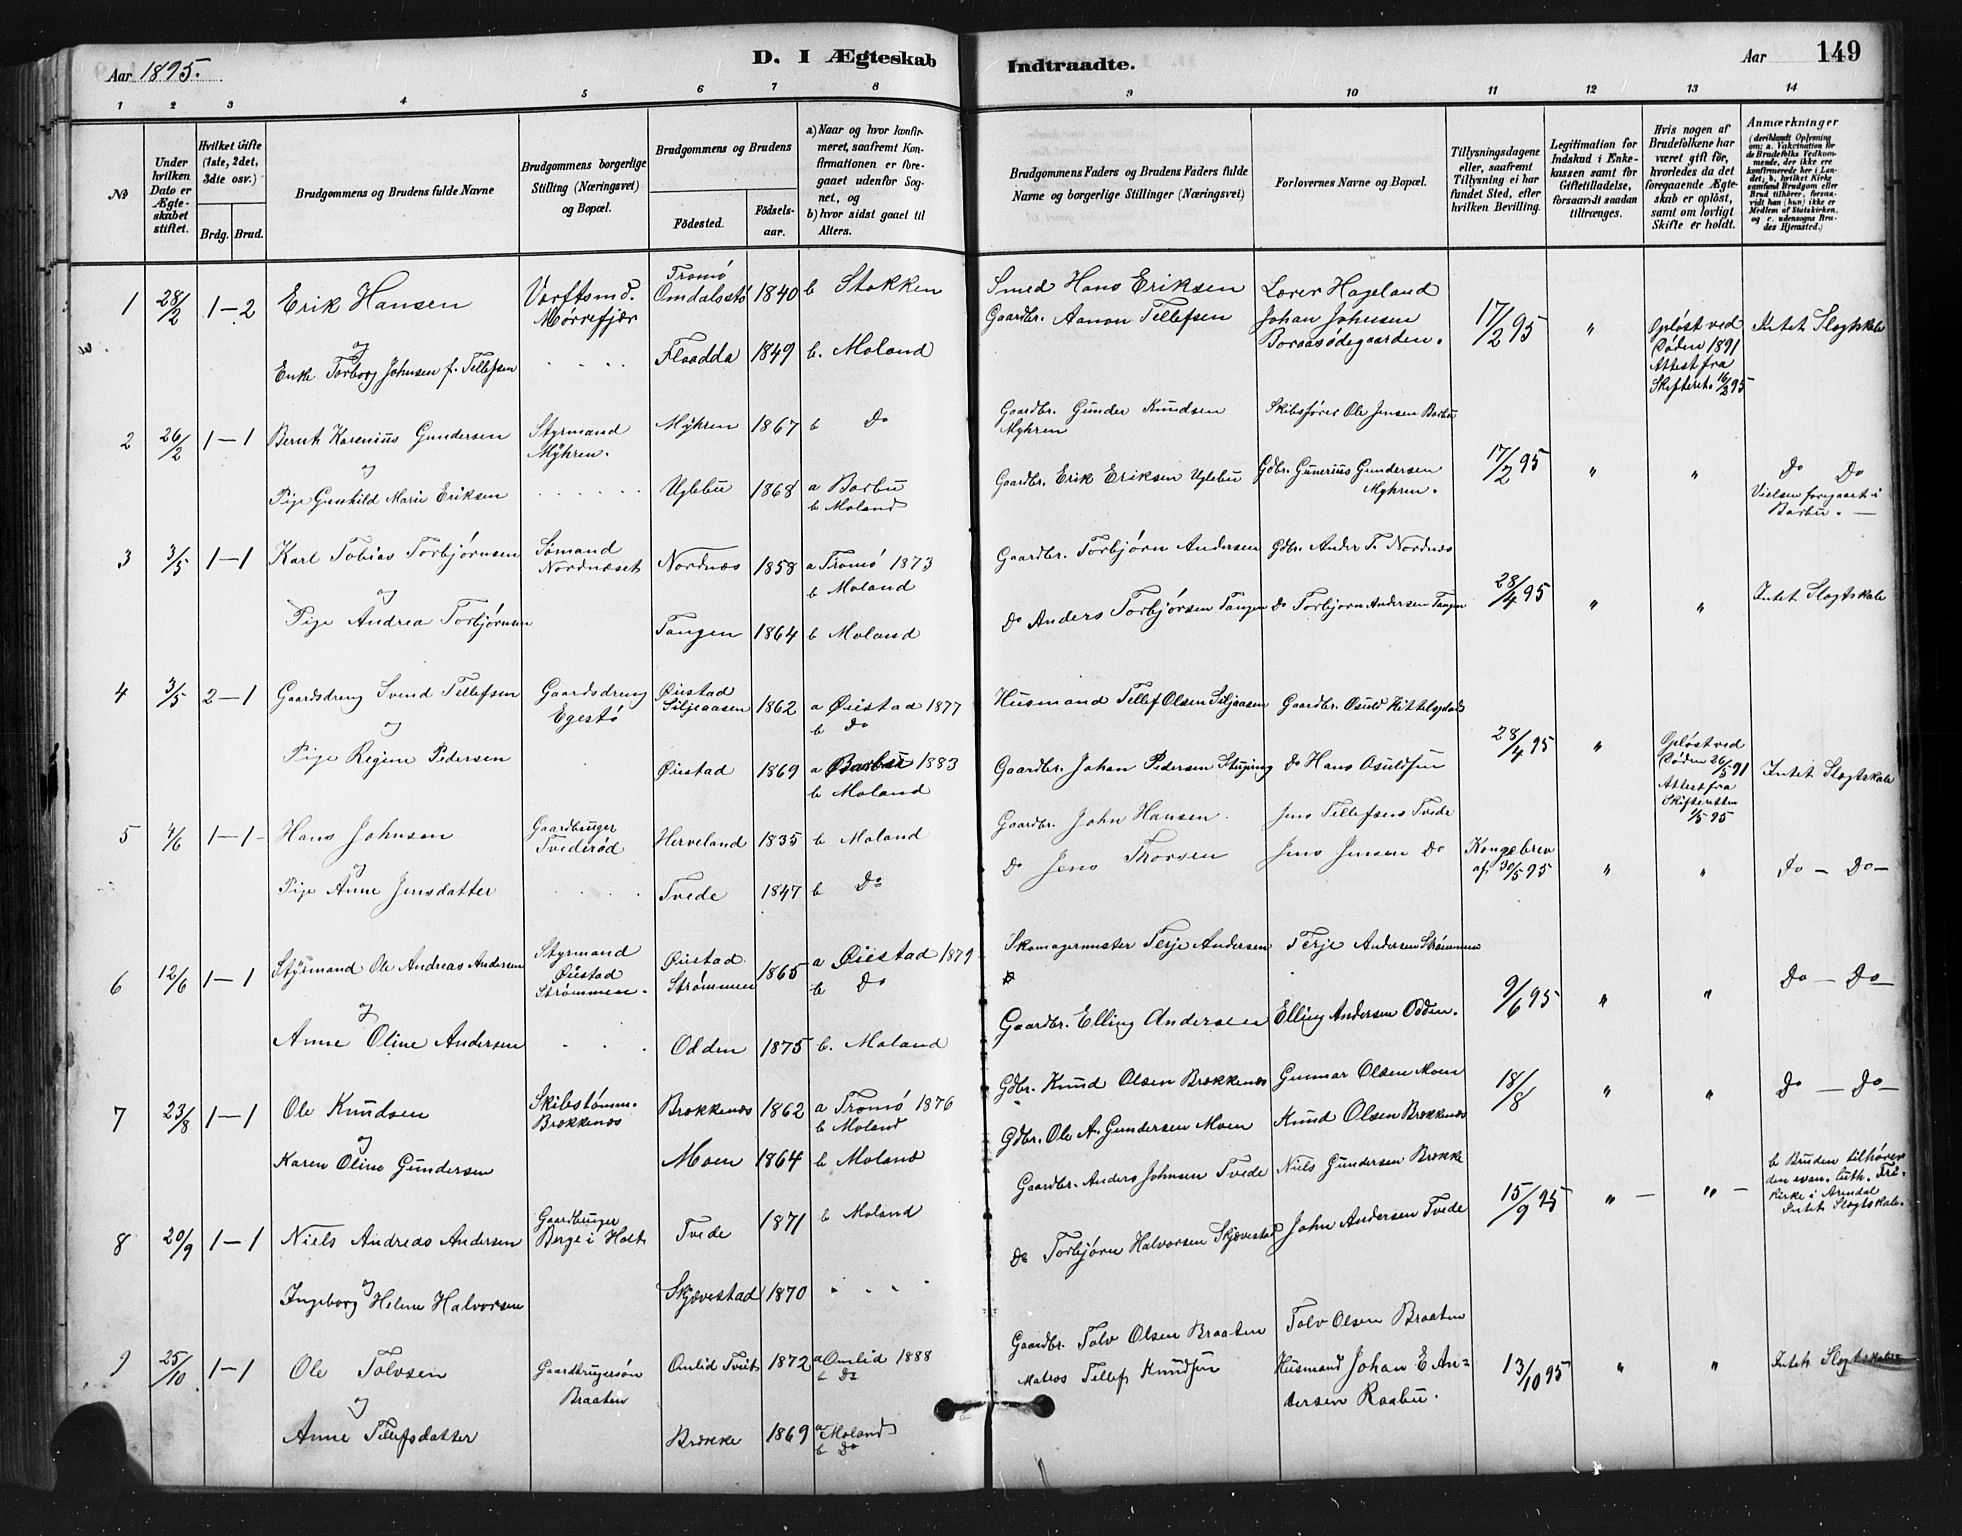 Aar 1895.
D. I Ægteskab
Indtraadte.
Aar
149
1 2 3 4 5 6 7 8 9 10 11 12 13 14
№
Under hvilken Dato er Ægteskabet stiftet.
Hvilket Gifte (1ste, 2det, 3die osv.)
Brdg. Brud.
Brudgommens og Brudens fulde Navne
Brudgommens borgerlige Stilling (Næringsvei) og Bopæl.
Brudgommens og Brudens
Födested.
Födselsaar.
a) Naar og hvor konfirmeret, saafremt Konfirmationen er foregaaet udenfor Sognet, og
b) hvor sidst gaaet til Alters.
Brudgommens Faders og Brudens Faders fulde Navne og borgerlige Stillinger (Næringsvei)
Forlovernes Navne og Bopæl.
Tillysningsdagene eller, saafremt Tillysning ei har fundet Sted, efter hvilken Bevilling.
Legitimation for Indskud i Enkekassen samt for Giftetilladelse, forsaavidt saadan tiltrænges.
Hvis nogen af Brudefolkene har været gift för, hvorledes da det foregaaende Ægteskab er oplöst, samt om lovligt Skifte er holdt.
Anmærkninger
(deriblandt Oplysning om: a. Vakcination for de Brudefolks Vedkommende, der ikke ere konfirmerede her i Landet; b. hvilket Kirkesamfund Brudgom eller Brud tilhörer, forsaavidt han (hun) ikke er Medlem af Statskirken, og c. udensogns Brudes Hjemsted.)
1 28/2 1 — 2 Erik Hansen Værftsmd. Mørrefjær Tromö Omdalsstö 1840 b Stokken Smed Hans Eriksen Lærer Hageland
og
Enke Torborg Johnsen f. Tellefsen Flaadda 1849 b. Moland Gaardbr. Aanon Tellefsen Johan Johnsen Boraasödegaarden. 17/2 95 " Opløst ved Døden 1891 Attest fra Skifteret. 16/2 95 Intet Slægtskab
2 26/2 1 — 1 Bernt Karenius Gundersen Styrmand Myhren. Myhren 1867 b Do Gaardbr. Gunder Knudsen Myhren Skibsfører Ole Jensen Barbu
og
Pige Gunhild Marie Eriksen Uglebu 1868 a Barbu b Moland Gaardbr. Erik Eriksen Uglebu Gdbr. Gunerius Gundersen Myhren. 17/2 95 " " Do Do
Vielsen foregaaet i Barbu. —
3 3/5 1 — 1 Karl Tobias Torbjørnsen Sømand Nordnæset Nordnæs 1858 a Tromö 1873 b Moland Gaardbr. Torbjørn Andersen Gdbr. Ander T. Nordnæs
og
Pige Andrea Torbjørnsen Tangen 1864 b Moland Do Anders Torbjørsen Tangen Do Torbjorn Andersen Tangen 28/4 95 " " Intet Slægtskab
4 3/5 2 — 1 Gaardsdreng Svend Tellefsen Gaardsdreng Egestö Øiestad Siljeaasen 1862 a Øiestad 1877 b Do Husmand Tellef Olsen Siljeaasen Gaardbr. Osuld
og
Pige Regine Pedersen Øiestad 1869 a Barbu 1883 b Moland Gaardbr. Johan Pedersen Do Hans Osuldsen 28/4 95 " Opløst ved Døden 26/5 91 Attest fra Skifteretten 1/5 95 Intet Slægtskab
5 4/6 1 — 1 Hans Johnsen Gaardbruger Tvederød Herveland 1835 b Moland Gaardbr. John Hansen. Jens Tellefsens Tvede
og
Pige Anne Jensdatter Tvede 1847 b Do Do Jens Jens Jensen Do Kongebrev af 30/5 95 " " Do — Do —
6 12/6 1 — 1 Styrmand Ole Andreas Andersen Styrmand Øiestad Strømmen. Øiestad Strømmen 1865 a Øiestad 1879 b Do Skomagermester Terje Andersen Terje Andersen Strømmen
og
Anne Oline Andersen Odden 1875 b. Moland Gaardbr. Elling Andersen Elling Andersen Odden. 9/6 95 " " Do — Do —
7 23/8 1 — 1 Ole Knudsen Skibstømm. Brækkenæs Brækkenæs 1862 a Tromö 1876 b Moland Gdbr. Knud Olsen Brækkenæs Gunnar Olsen Moen 18/8 " " Do — Do —
og
Karen Oline Gundersen Moen 1864 b Moland Gdbr. Ole A. Gundersen Moen Knud Olsen Brækkenæs
8 20/9 1 — 1 Niels Andreas Andersen Gaardbruger Berge i Holt Tvede 1871 b Moland Gaardbr. Anders Johnsen Tvede Niels Gundersen Brække 15/9 95 " — " — b Bruden tilhører den evan. luth. Frikirke i Arendal Intet Slægtskab.
og
Ingeborg Helene Halvorsen Skjævestad 1870 " " " " Do Torbjørn Halvorsen Skjævestad John Andersen Tvede
9 25/10 1 — 1 Ole Tolvsen Gaardbrugersøn Braaten Omlid Tveit 1872 a Omlid 1888 b Do Gaardbr. Tolv Olsen Braaten Tolv Olsen Braaten
og
Anne Tellefsdatter Brække 1869 a Moland b Do Matros Tellef Knudsen Husmand Johan E Andersen Raabu. 13/10 95 " " Intet Slægtskab